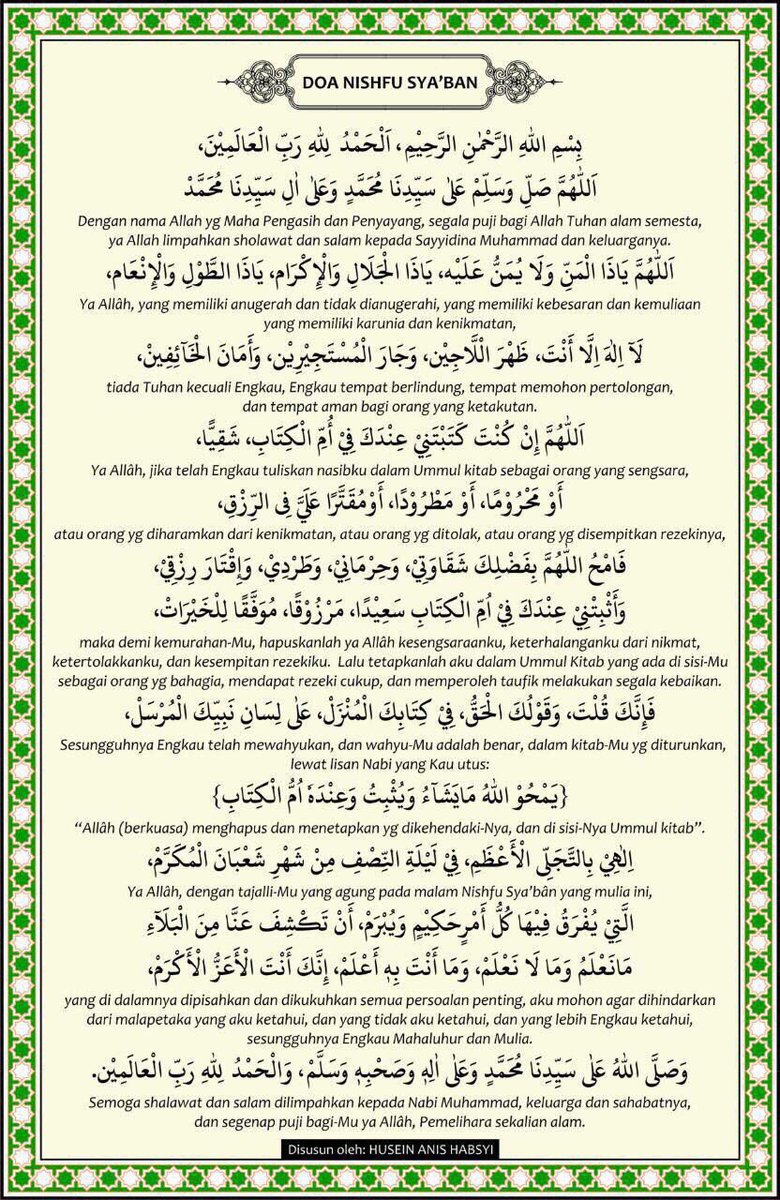 DOA NISHFU SYA'BAN
بِسْمِ اللهِ الرَّحْمٰنِ الرَّحِيْمِ، اَلْحَمْدُ لِلهِ رَبِّ الْعَالَمِيْنَ،
اَللّٰهُمَّ صَلِّ وَسَلِّمْ عَلٰى سَيِّدِنَا مُحَمَّدٍ وَعَلٰى اٰلِ سَيِّدِنَا مُحَمَّدْ
Dengan nama Allah yg Maha Pengasih dan Penyayang, segala puji bagi Allah Tuhan alam semesta,
ya Allah limpahkan sholawat dan salam kepada Sayyidina Muhammad dan keluarganya.
اَللّٰهُمَّ يَاذَا الْمَنِّ وَلَا يُمَنُّ عَلَيْه، يَاذَا الْجَلَالِ وَالْإِكْرَام، يَاذَا الطَّوْلِ وَالْإِنْعَام،
Ya Allâh, yang memiliki anugerah dan tidak dianugerahi, yang memiliki kebesaran dan kemuliaan
yang memiliki karunia dan kenikmatan,
لَآ اِلٰهَ اِلَّا أَنْتَ، ظَهْرَ اللَّاجِيْن، وَجَارَ الْمُسْتَجِيْرِيْن، وَأَمَانَ الْخَآئِفِيْنْ،
tiada Tuhan kecuali Engkau, Engkau tempat berlindung, tempat memohon pertolongan,
dan tempat aman bagi orang yang ketakutan.
اَللّٰهُمَّ إِنْ كُنْتَ كَتَبْتَنِيْ عِنْدَكَ فِيْ أُمِّ الْكِتَابِ، شَقِيًّا،
Ya Allâh, jika telah Engkau tuliskan nasibku dalam Ummul kitab sebagai orang yang sengsara,
أَوْ مَحْرُوْمًا، أَوْ مَطْرُوْدًا، أَوْمُقَتَّرًا عَلَيَّ فِى الرِّزْقِ،
atau orang yg diharamkan dari kenikmatan, atau orang yg ditolak, atau orang yg disempitkan rezekinya,
فَامْحُ اللّٰهُمَّ بِفَضْلِكَ شَقَاوَتِيْ، وَحِرْمَانِيْ، وَطَرْدِيْ، وَإِقْتَارَ رِزْقِيْ،
وَأَثْبِتْنِيْ عِنْدَكَ فِيْ اُمِّ الْكِتَابِ سَعِيْدًا، مَرْزُوْقًا، مُوَفَّقًا لِلْخَيْرَاتْ،
maka demi kemurahan-Mu, hapuskanlah ya Allâh kesengsaraanku, keterhalanganku dari nikmat,
ketertolakkanku, dan kesempitan rezekiku. Lalu tetapkanlah aku dalam Ummul Kitab yang ada di sisi-Mu
sebagai orang yg bahagia, mendapat rezeki cukup, dan memperoleh taufik melakukan segala kebaikan.
فَإِنَّكَ قُلْتَ، وَقَوْلُكَ الْحَقُّ، فِيْ كِتَابِكَ الْمُنْزَلْ، عَلٰى لِسَانِ نَبِيِّكَ الْمُرْسَلْ،
Sesungguhnya Engkau telah mewahyukan, dan wahyu-Mu adalah benar, dalam kitab-Mu yg diturunkan,
lewat lisan Nabi yang Kau utus:
{يَمْحُوْ اللهُ مَايَشَآءُ وَيُثْبِتُ وَعِنْدَهٗ اُمُّ الْكِتَابِ}
"Allâh (berkuasa) menghapus dan menetapkan yg dikehendaki-Nya, dan di sisi-Nya Ummul kitab".
اِلٰهِيْ بِالتَّجَلِّى الْأَعْظَمِ، فِيْ لَيْلَةِ النِّصْفِ مِنْ شَهْرِ شَعْبَانَ الْمُكَرَّمْ،
Ya Allâh, dengan tajalli-Mu yang agung pada malam Nishfu Sya'bân yang mulia ini,
الَّتِيْ يُفْرَقُ فِيْهَا كُلُّ أَمْرٍحَكِيْمٍ وَيُبْرَمْ، أَنْ تَكْشِفَ عَنَّا مِنَ الْبَلَآءِ
مَانَعْلَمُ وَمَا لَا نَعْلَمْ، وَمَا أَنْتَ بِهٖ أَعْلَمْ، إِنَّكَ أَنْتَ الْأَعَزُّ الْأَكْرَمْ،
yang di dalamnya dipisahkan dan dikukuhkan semua persoalan penting, aku mohon agar dihindarkan
dari malapetaka yang aku ketahui, dan yang tidak aku ketahui, dan yang lebih Engkau ketahui,
sesungguhnya Engkau Mahaluhur dan Mulia.
وَصَلَّى اللهُ عَلٰى سَيِّدِنَا مُحَمَّدٍ وَعَلٰى اٰلِهٖ وَصَحْبِهٖ وَسَلَّمْ، وَالْحَمْدُ لِلهِ رَبِّ الْعَالَمِيْن.
Semoga shalawat dan salam dilimpahkan kepada Nabi Muhammad, keluarga dan sahabatnya,
dan segenap puji bagi-Mu ya Allâh, Pemelihara sekalian alam.
Disusun oleh: HUSEIN ANIS HABSYI